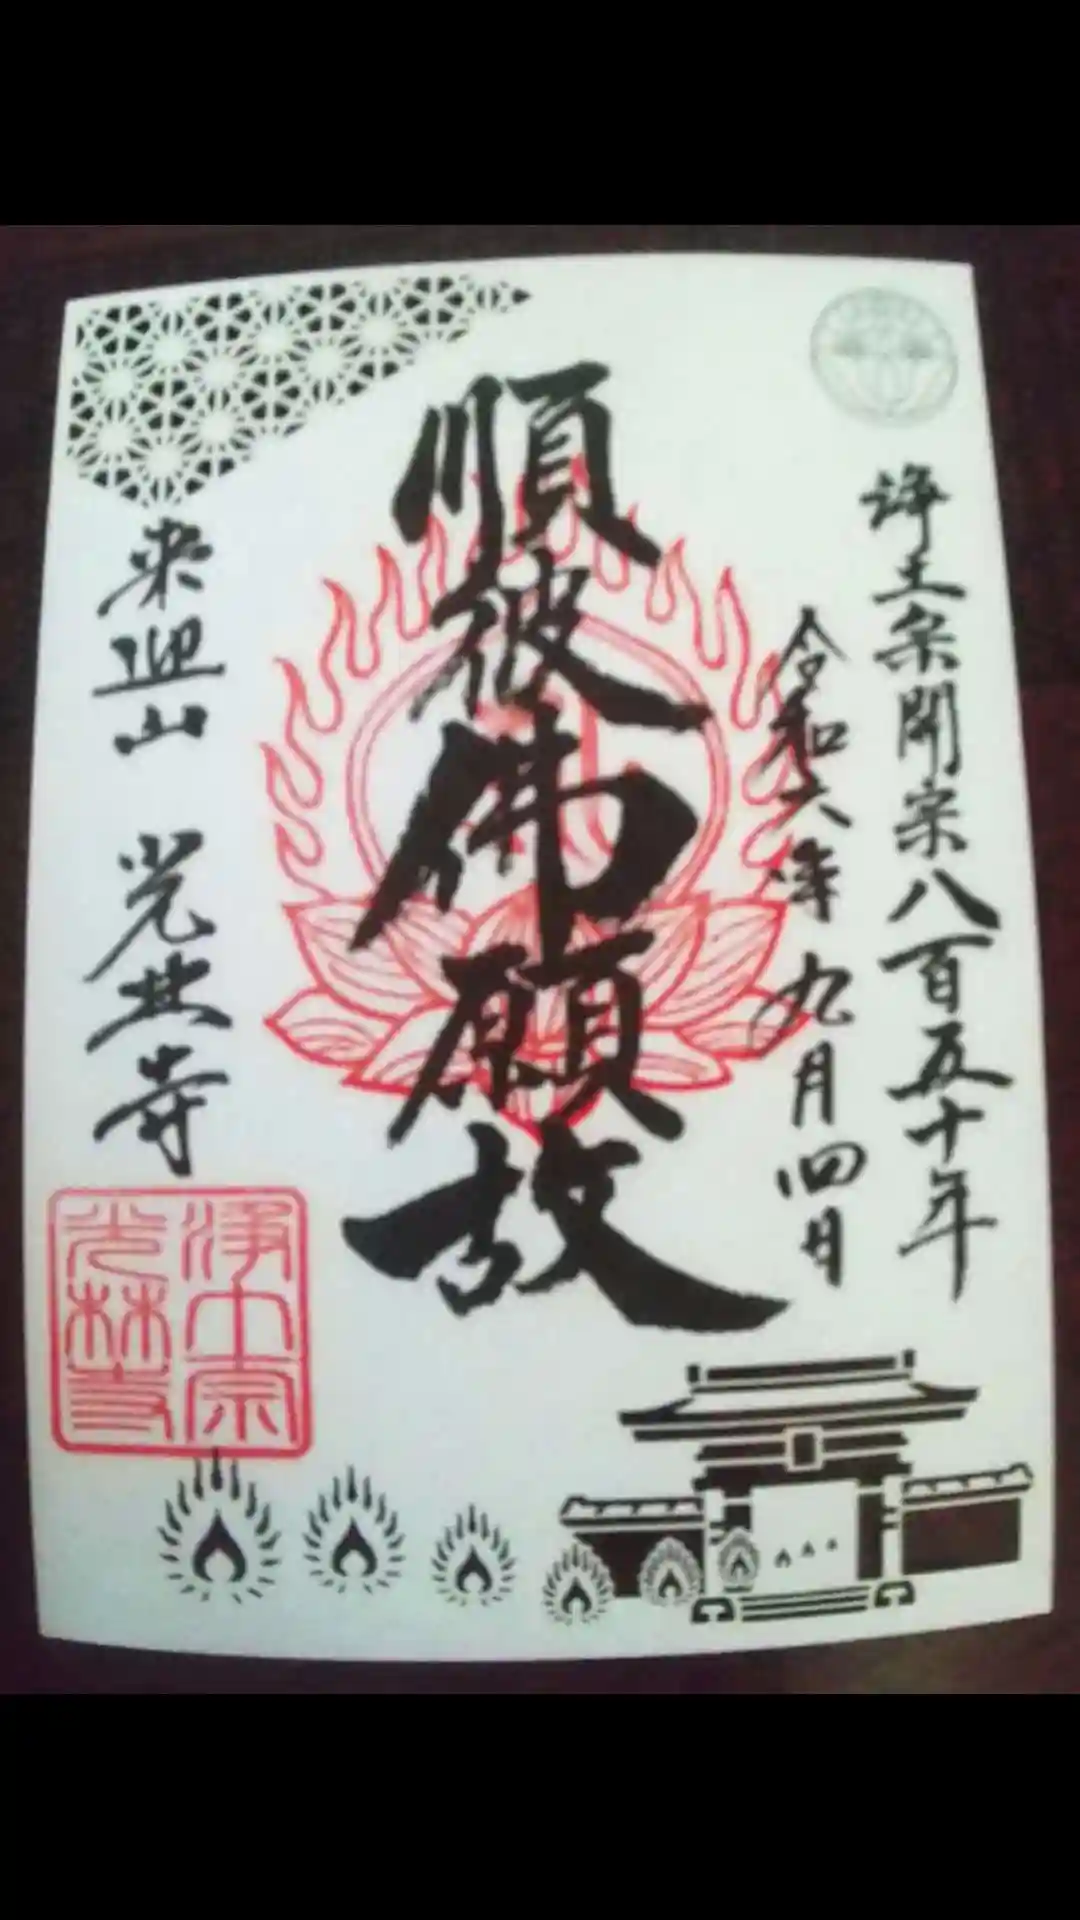 浄土宗開宗八百五十年
令和六年九月四日
順彼佛願故
来迎山 光林寺
浄土宗
光林寺